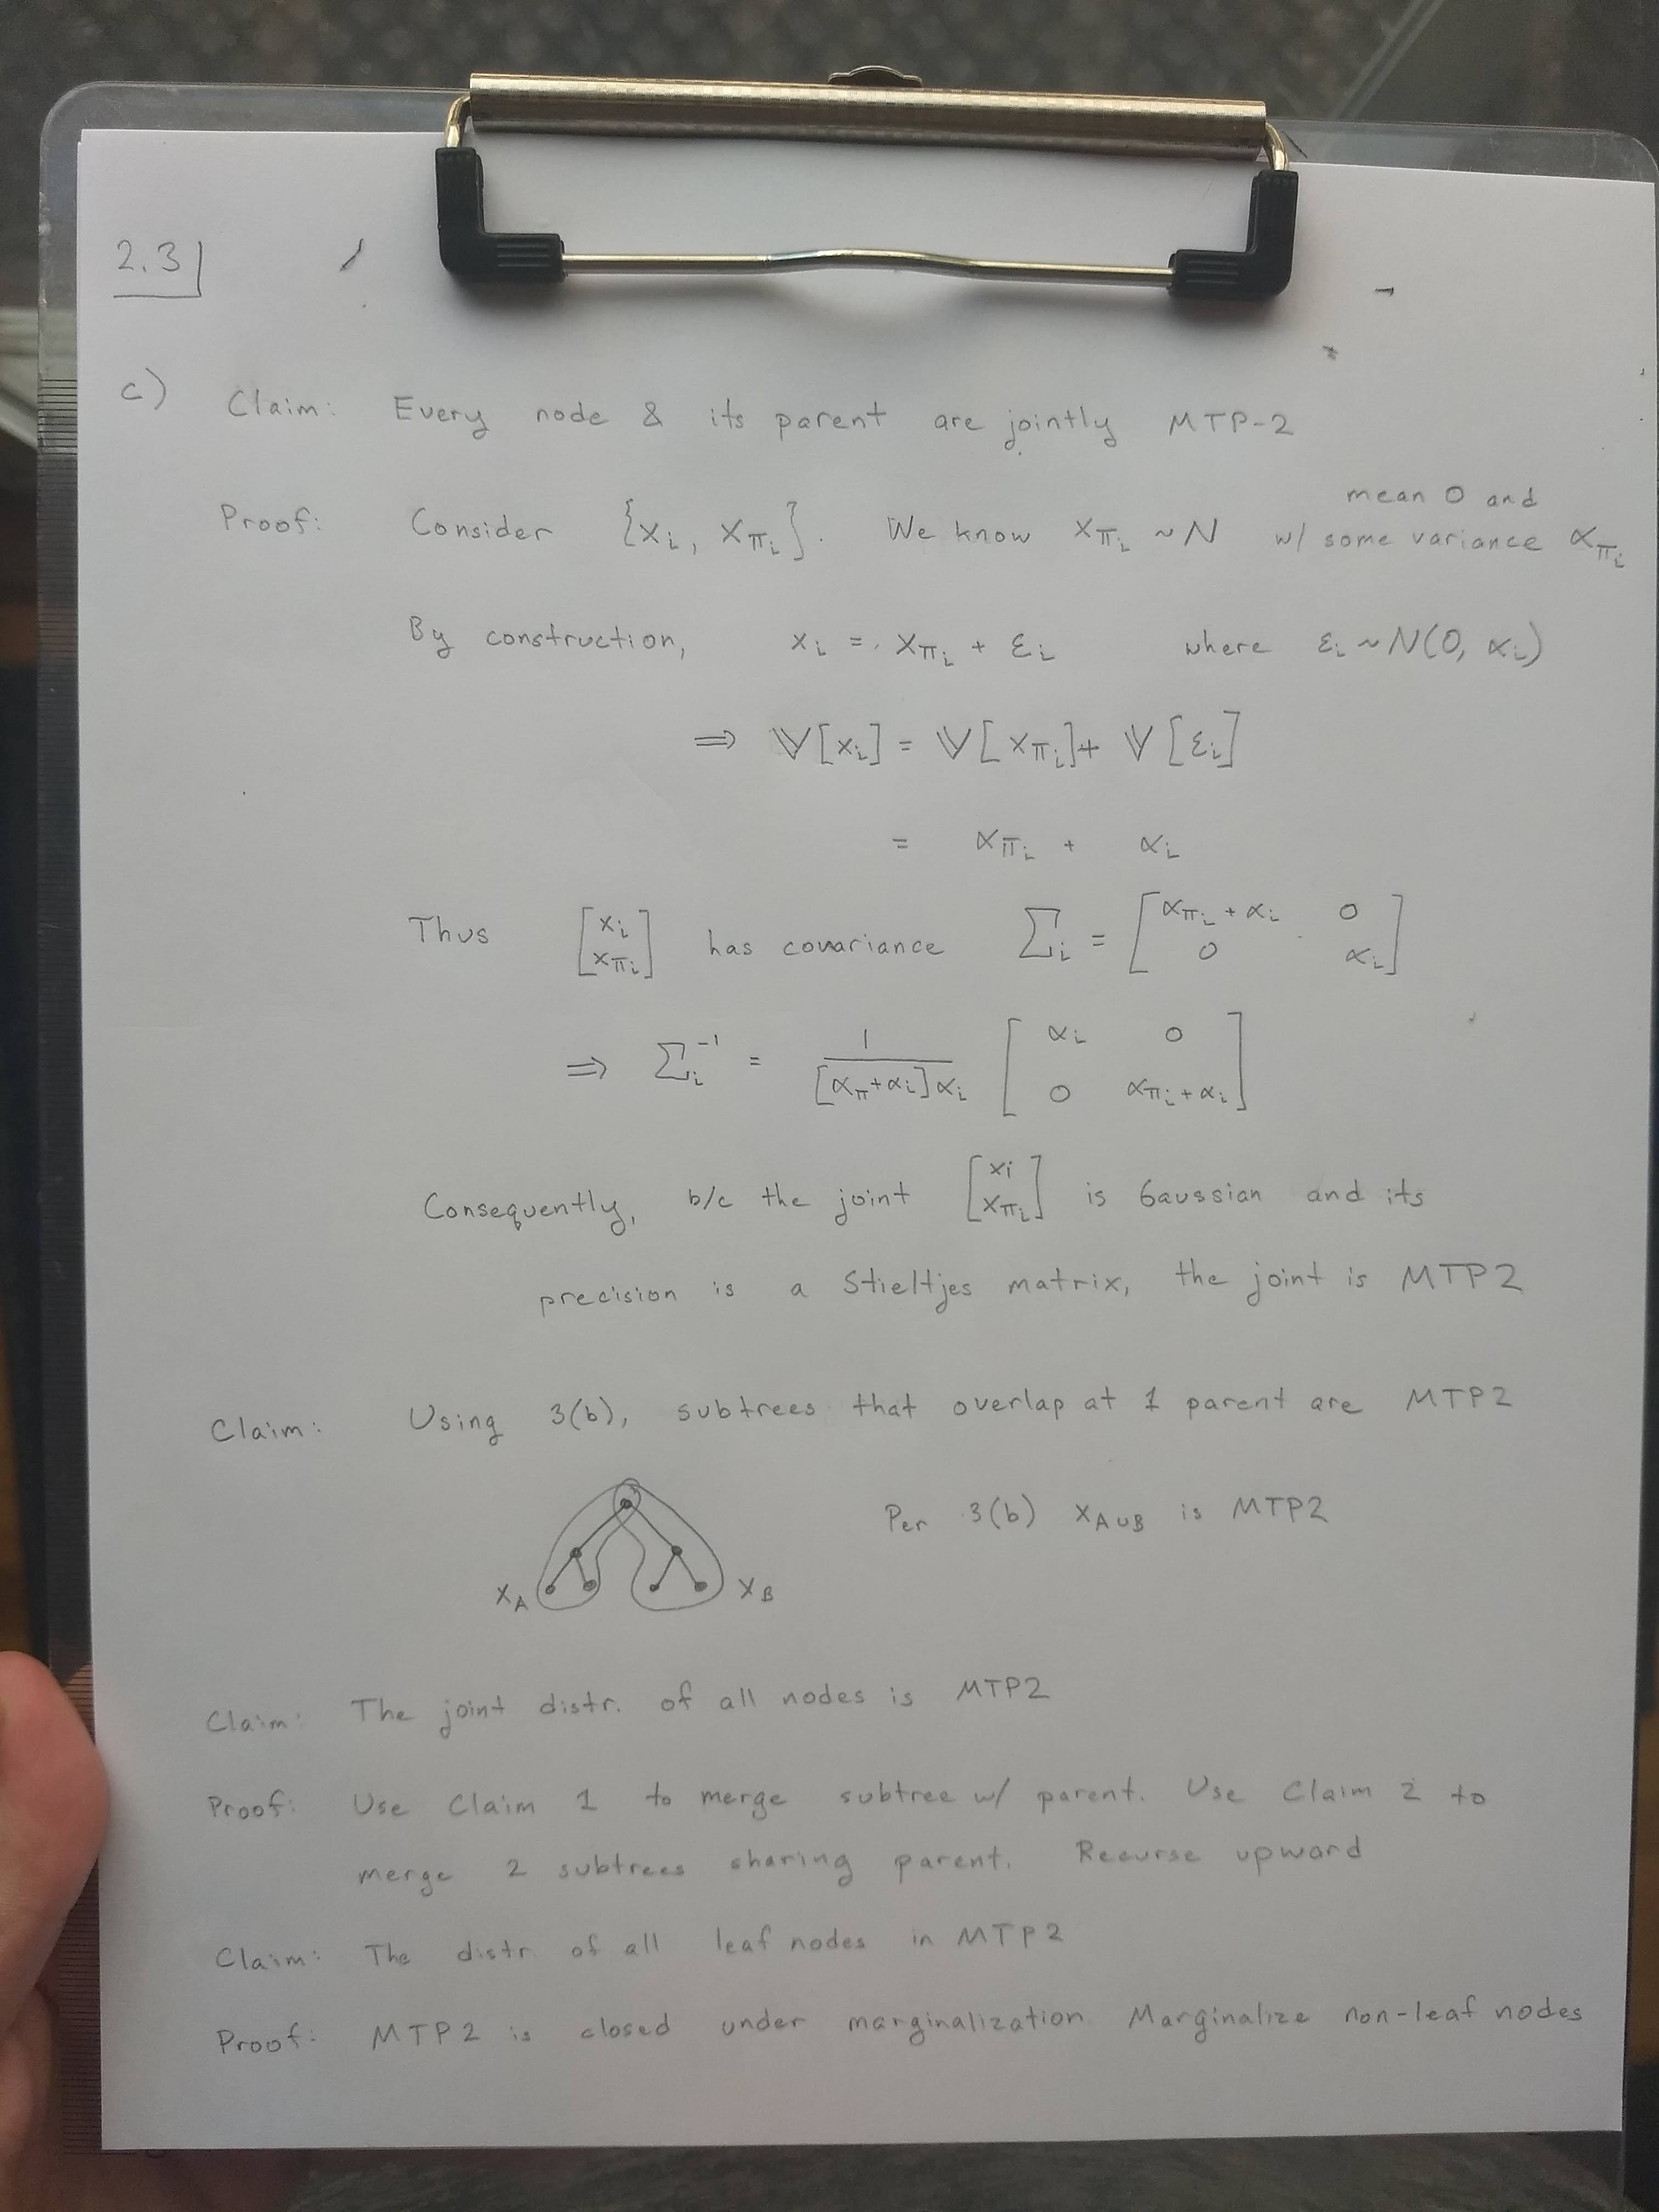 2.3
c) Claim: Every node & its parent are jointly MTP-2
mean 0 and
Proof: Consider {x_i, x_{π_i}}. We know x_{π_i} ~ N w/ some variance α_{π_i}
By construction, x_i = x_{π_i} + ε_i where ε_i ~ N(0, α_i)
⇒ 𝕍[x_i] = 𝕍[x_{π_i}] + 𝕍[ε_i]
= α_{π_i} + α_i
Thus [x_i; x_{π_i}] has covariance Σ_i = [α_{π_i} + α_i 0; 0 α_i]
⇒ Σ_i^{-1} = 1/([α_π + α_i] α_i) [α_i 0; 0 α_{π_i} + α_i]
Consequently, b/c the joint [x_i; x_{π_i}] is Gaussian and its
precision is a Stieltjes matrix, the joint is MTP2
Claim: Using 3(b), subtrees that overlap at 1 parent are MTP2
Per 3(b) x_{A∪B} is MTP2
x_A x_B
Claim: The joint distr. of all nodes is MTP2
Proof: Use Claim 1 to merge subtree w/ parent. Use Claim 2 to
merge 2 subtrees sharing parent. Recurse upward
Claim: The distr of all leaf nodes in MTP2
Proof: MTP2 is closed under marginalization. Marginalize non-leaf nodes